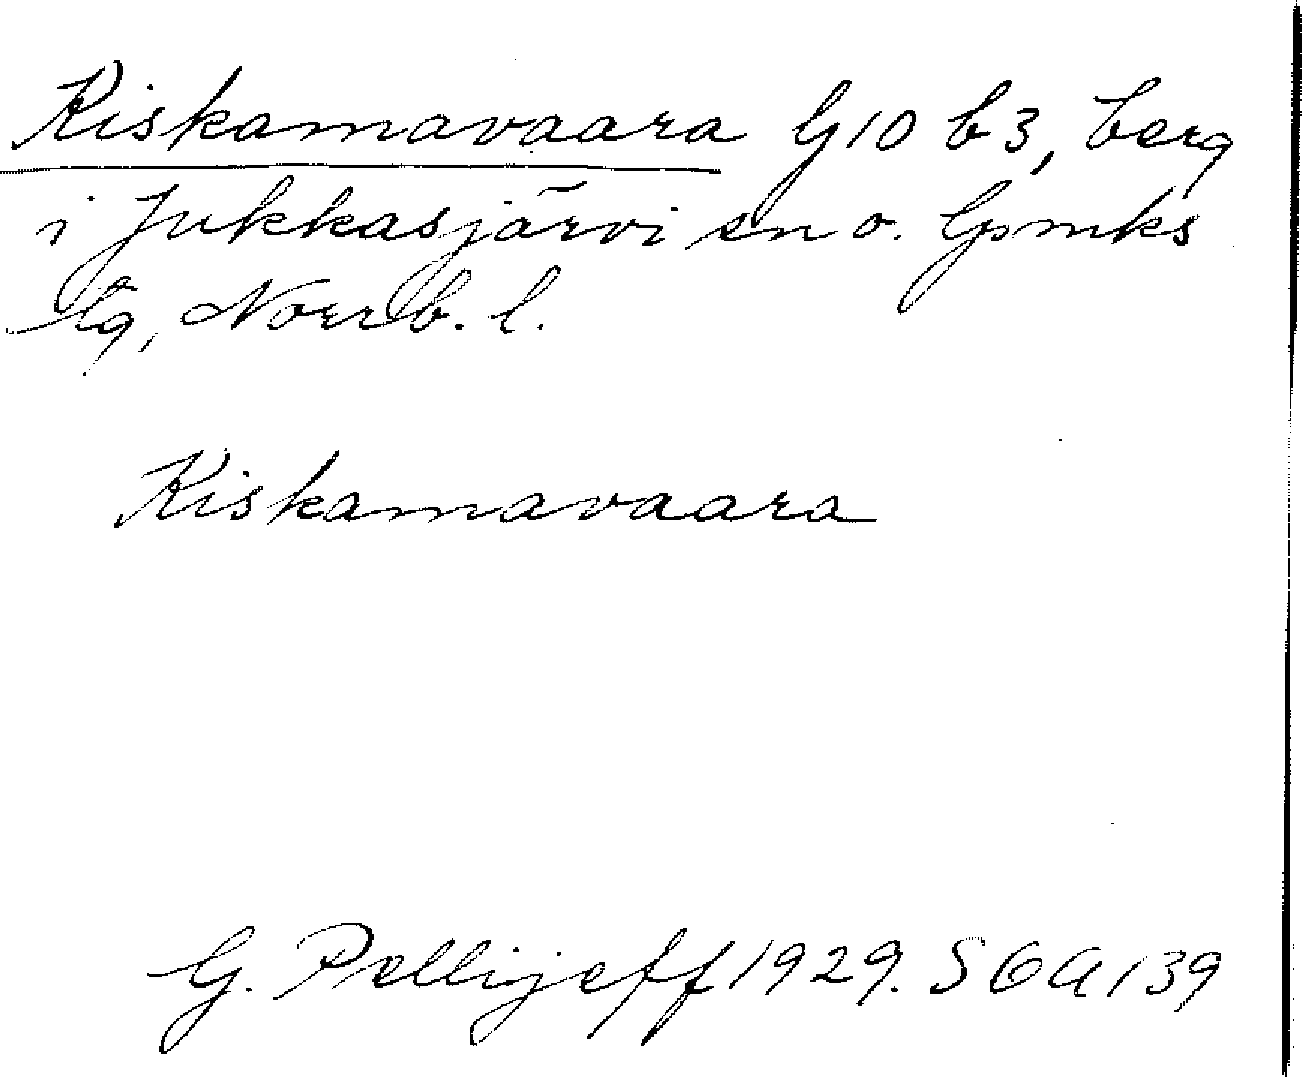 Kiskamavaara G10 b3, berg
i Jukkasjärvi sn o. Gpmks
tg, Norrb. l.
Kiskamavaara
G. Pellijeff 1929. SGA 139